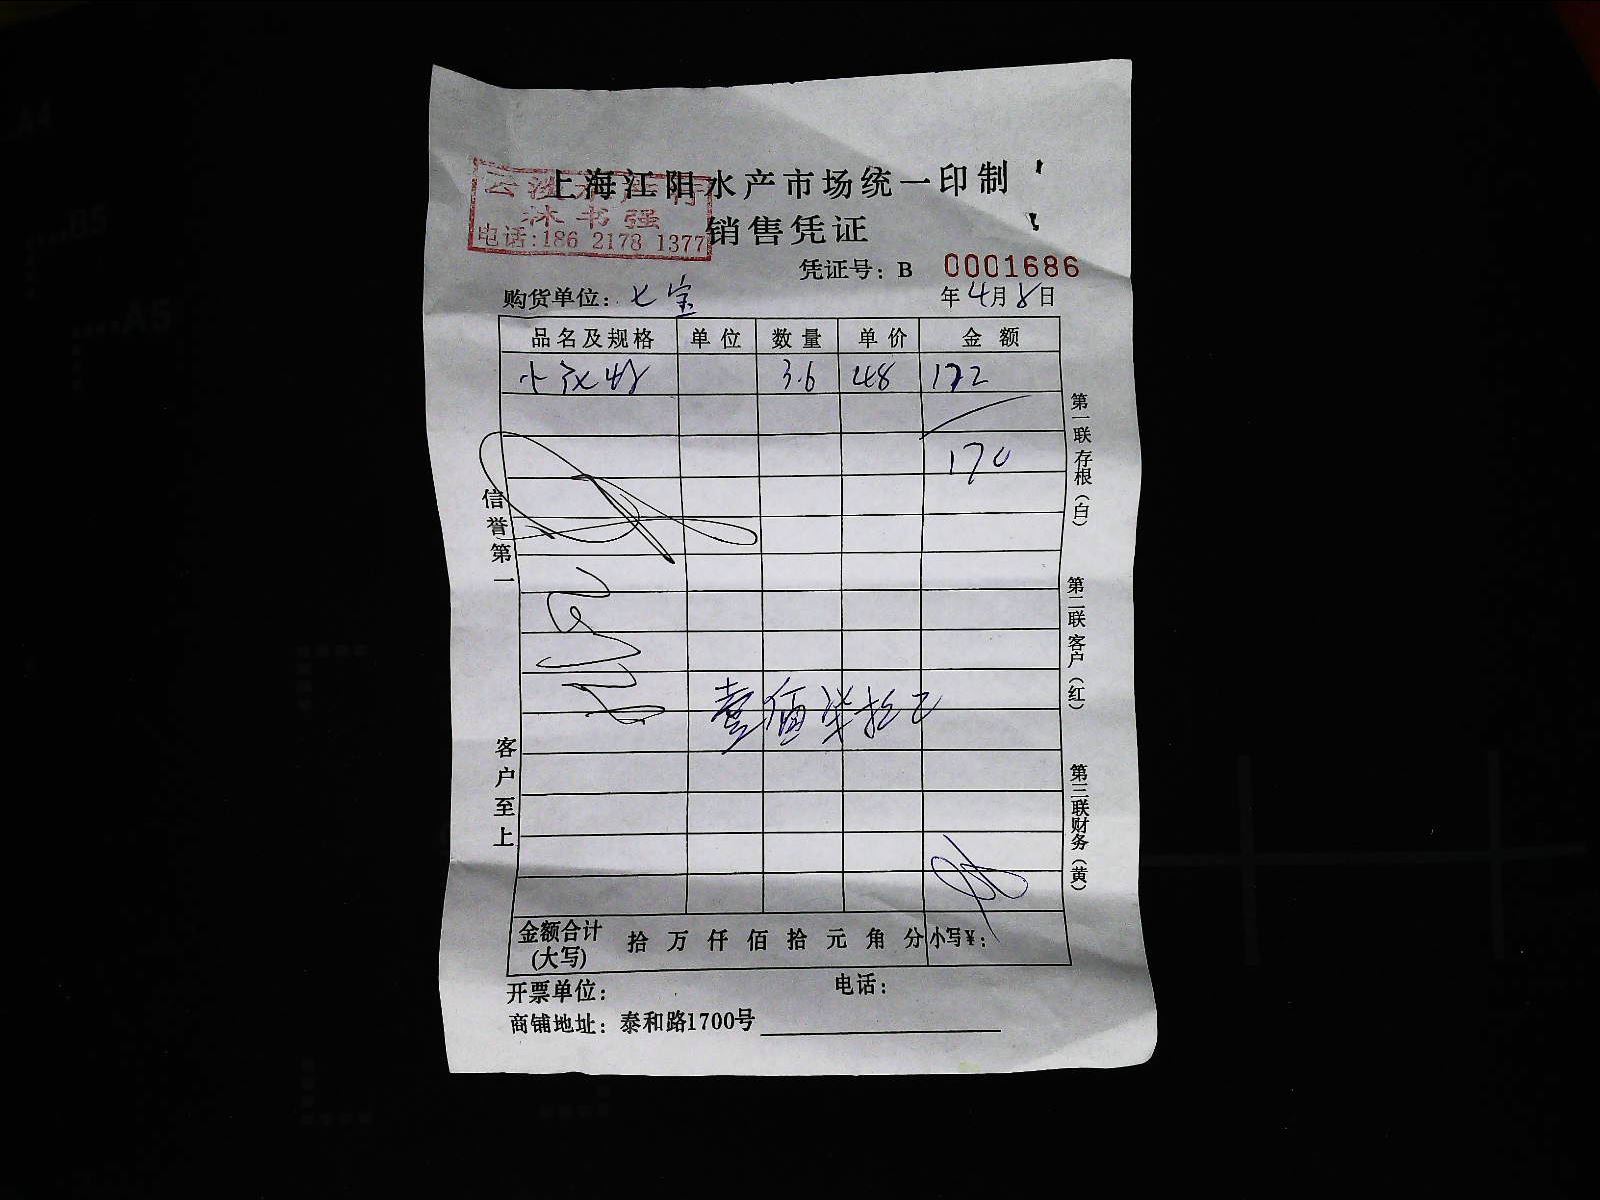 上海江阳水产市场统一印制
林书强
电话:186 2178 1377
销售凭证
凭证号: B 0001686
购货单位: 七宝
年4月8日
品名及规格 单位 数量 单价 金额
3.6 48 172
170
壹佰柒拾元
信誉第一
客户至上
第一联存根（白）
第二联客户（红）
第三联财务（黄）
金额合计(大写) 拾 万 仟 佰 拾 元 角 分 小写¥:
开票单位: 电话:
商铺地址: 泰和路1700号